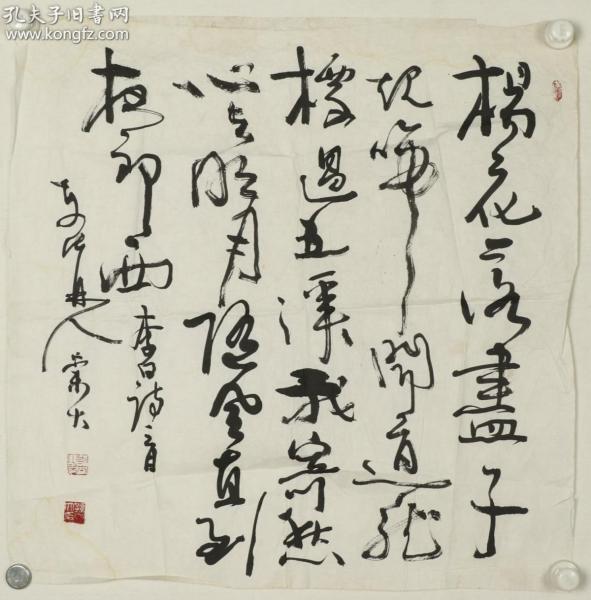 孔夫子旧书网
www.kongfz.com
楊花落盡子
規啼聞道龍
標過五溪我寄愁
心与明月隨风直到
夜郎西 李白詩一首